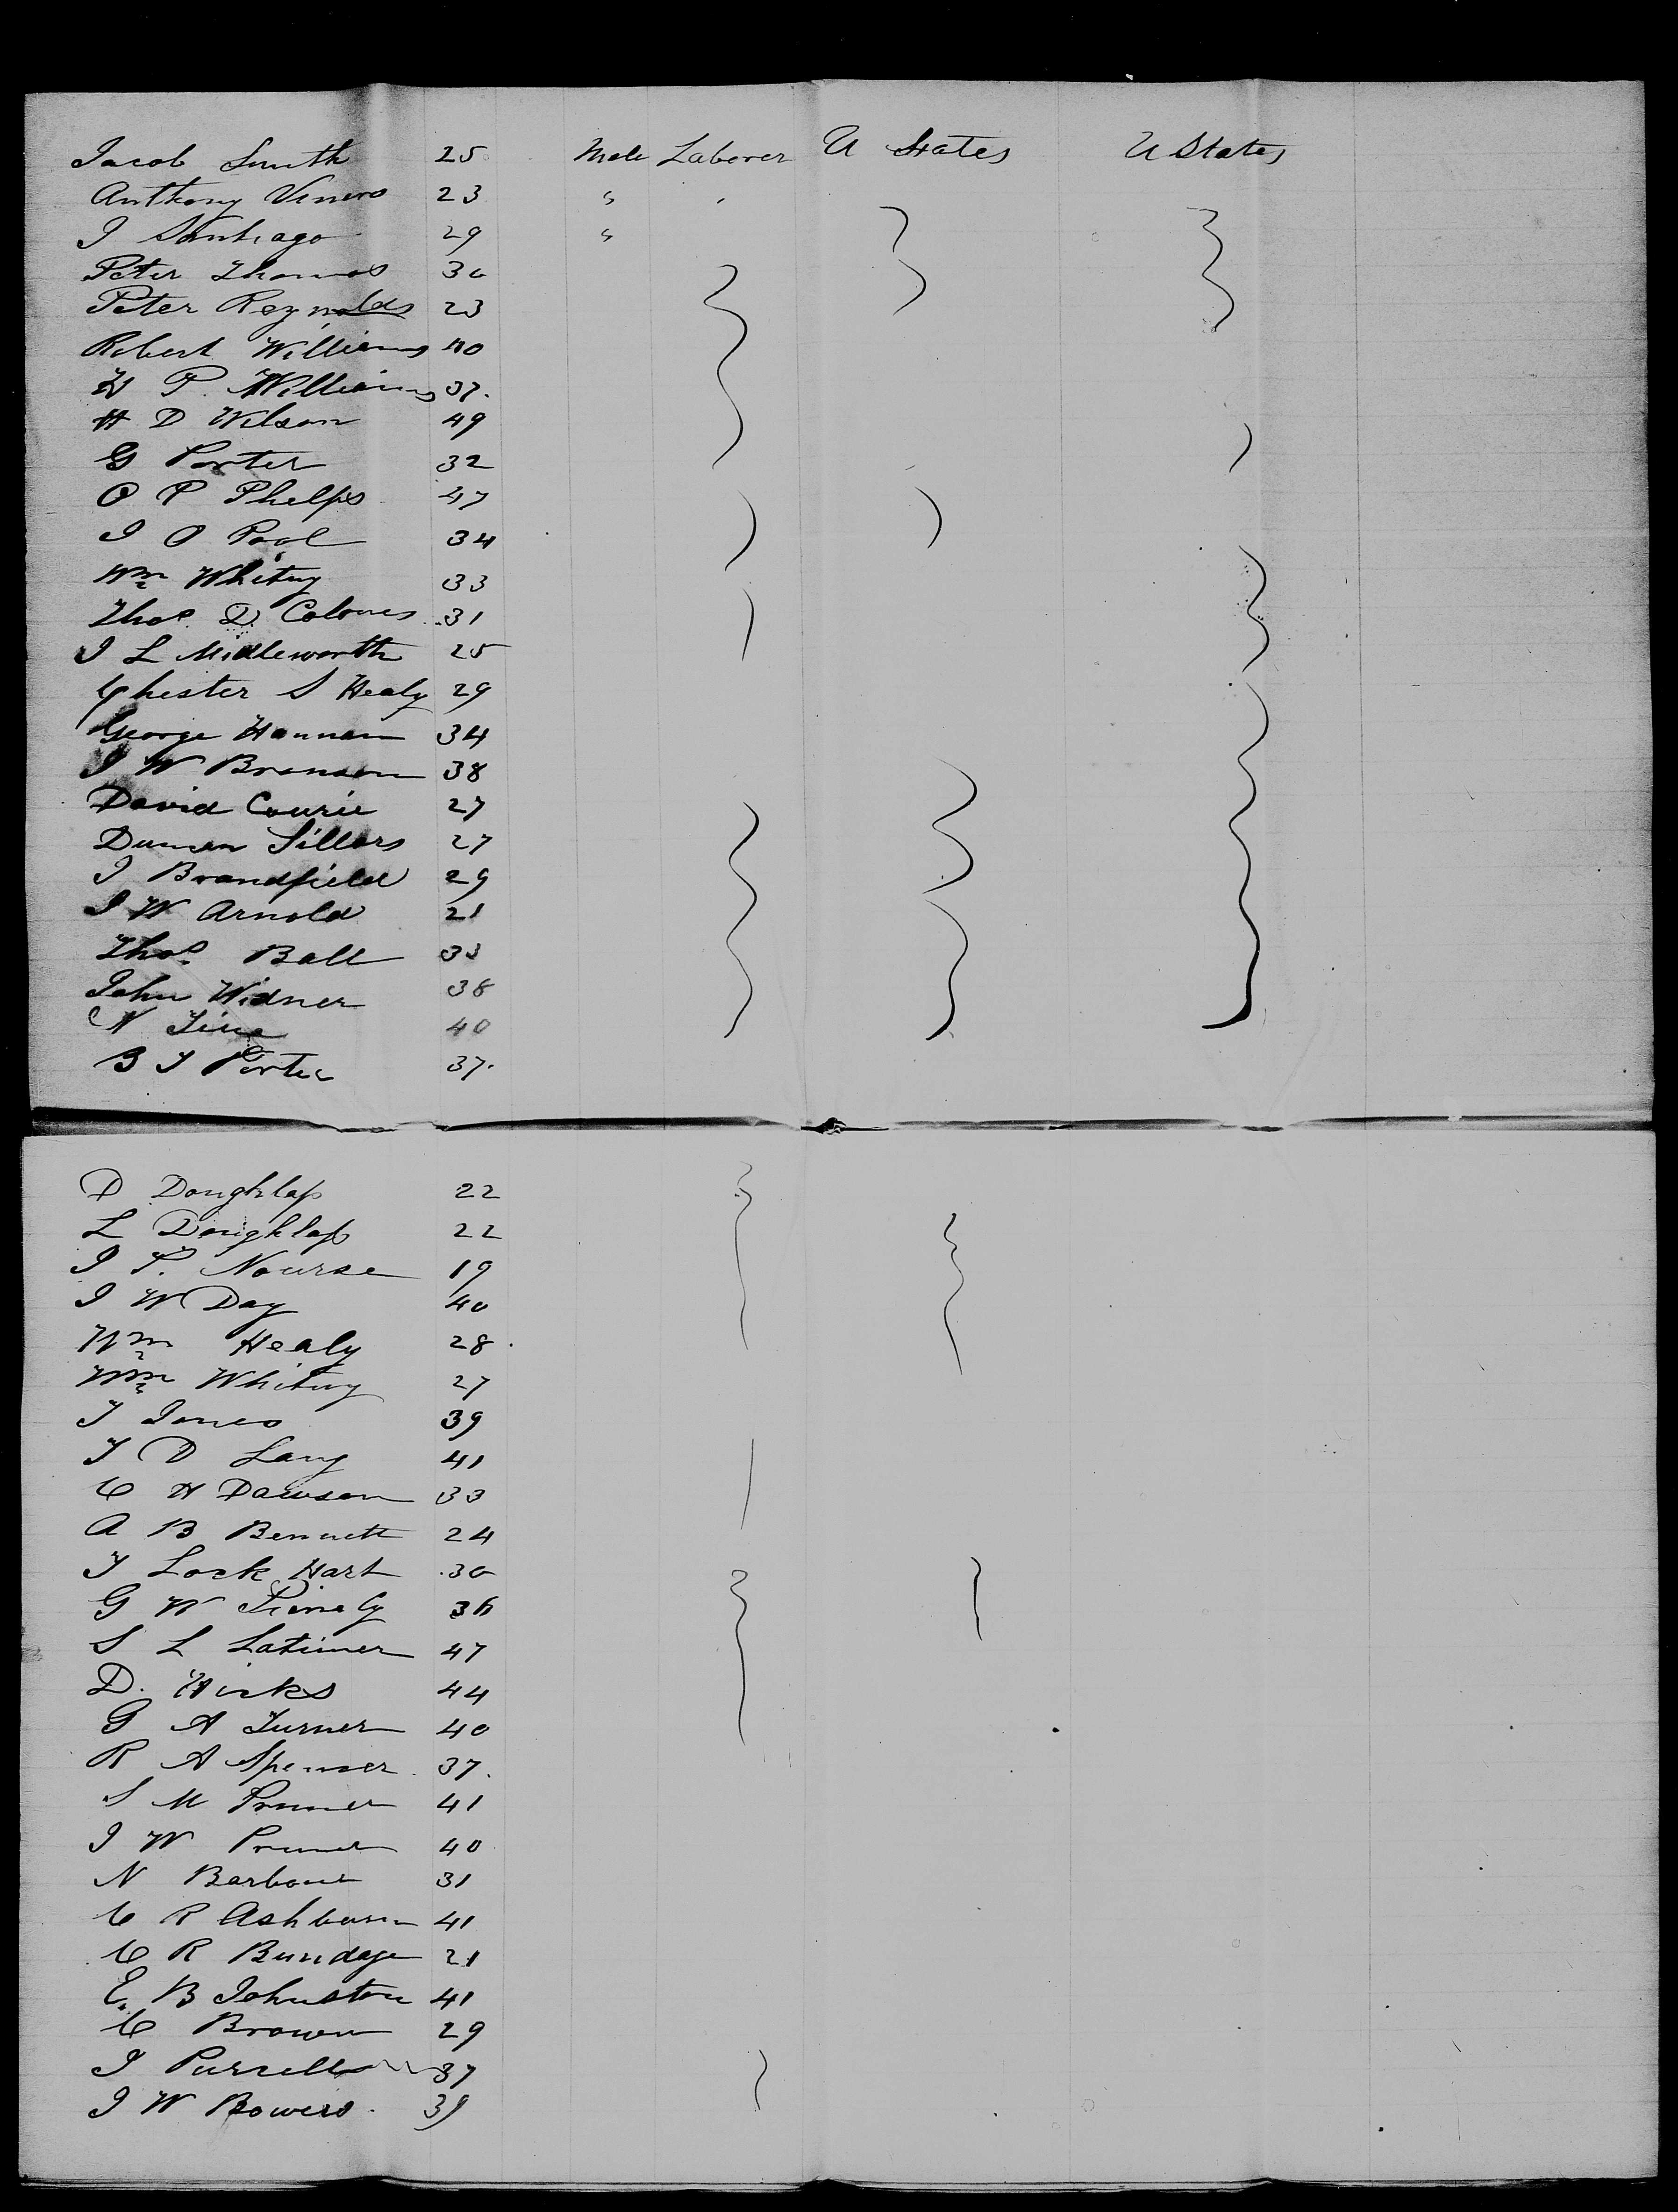 Jacob Smith 25 Male Laborer U States U States
Anthony 23 " "
J Santiago 29 "
Peter Thomas 30
Peter Reynolds 23
Robert Williams 40
W P. Williams 37.
H D Wilson 49
G Porter 32
O P Phelps 47
J O Pool 34
Wm Whitny 33
Thos. D. 31
J L Midleworth 25
Chester S Healy 29
George Hannan 34
J W Bronson 38
David Courie 27
Duncan Sillars 27
J Brandfield 29
J W Arnold 21
Thos. Ball 33
John Widner 38
N 40
B F Porter 37.
D Doughlass 22
L Doughlass 22
J P. Nourse 19
J W Day 40
Wm Healy 28
Wm Whitny 27
T Jones 39
T D Lang 41
C H Dawson 33
A B Bennett 24
T Lock Hart 30
G W 36
S L Latimer 47
D. Hicks 44
G A Turner 40
R A Spenser 37.
S M Pruner 41
J W Pruner 40
N Barbour 31
C R Ashburn 41
C R Bundage 21
E. B Johnston 41
C Brown 29
J Purcells 37
J W Bowers. 39